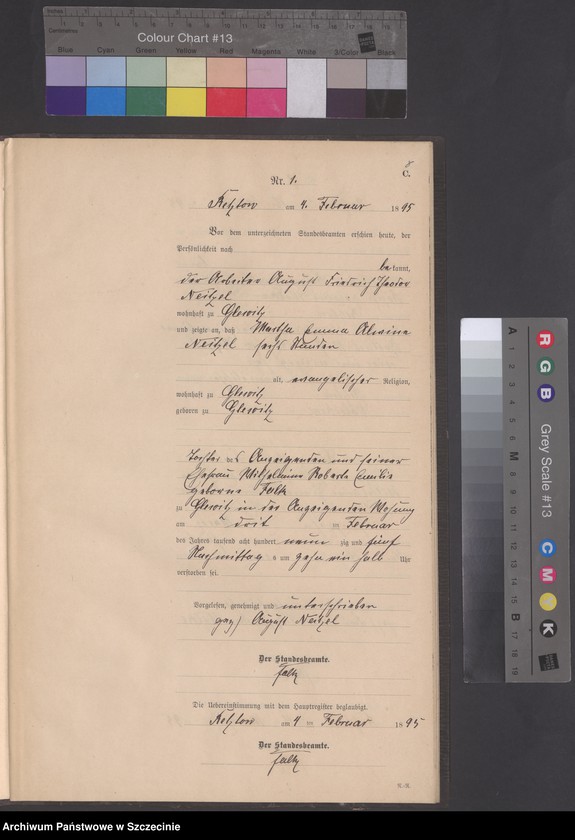 Inches
Centimetres
Colour Chart #13
Blue Cyan Green Yellow Red Magenta White 3/Color Black
C.
Nr. 1.
am 4. Februar 1895
Vor dem unterzeichneten Standesbeamten erschien heute, der
Persönlichkeit nach
bekannt,
der Arbeiter August Friedrich Theodor
Neitzel
wohnhaft zu Glewitz
und zeigte an, daß Martha Emma Alwine
Neitzel sechs Stunden
alt, evangelischer Religion,
wohnhaft zu Glewitz
geboren zu Glewitz
Tochter des Anzeigenden und seiner
Ehefrau Wilhelmine Roberte Emilie
geborne Falk
zu Glewitz in des Anzeigenden Wohnung
am drit en Februar
des Jahres tausend acht hundert neun zig und fünf
Nachmittag s um zehn ein halb Uhr
verstorben sei.
Vorgelesen, genehmigt und unterschrieben
gez) August Neitzel
Der Standesbeamte.
Falk
Die Uebereinstimmung mit dem Hauptregister beglaubigt.
am 4 ten Februar 1895
Der Standesbeamte.
Falk
Grey Scale #13
R G B
C M Y K
A 1 2 3 4 5 6 M 8 9 10 11 12 13 14 15 B 17 18 19
Archiwum Państwowe w Szczecinie